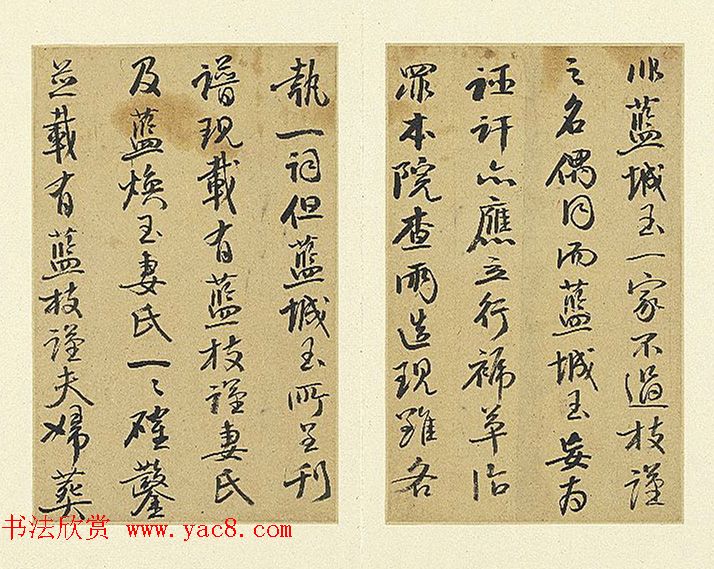 藍城玉一家不過枝謹
之名偶同而藍城玉妄为
誣訐亦應立行褫革治
罪本院查兩造現雖各
執一詞但藍城玉所呈刊
譜現載有藍枝謹妻氏
及藍煥玉妻氏一〻確鑿
並載有藍枝謹夫婦葬
书法欣赏 www.yac8.com